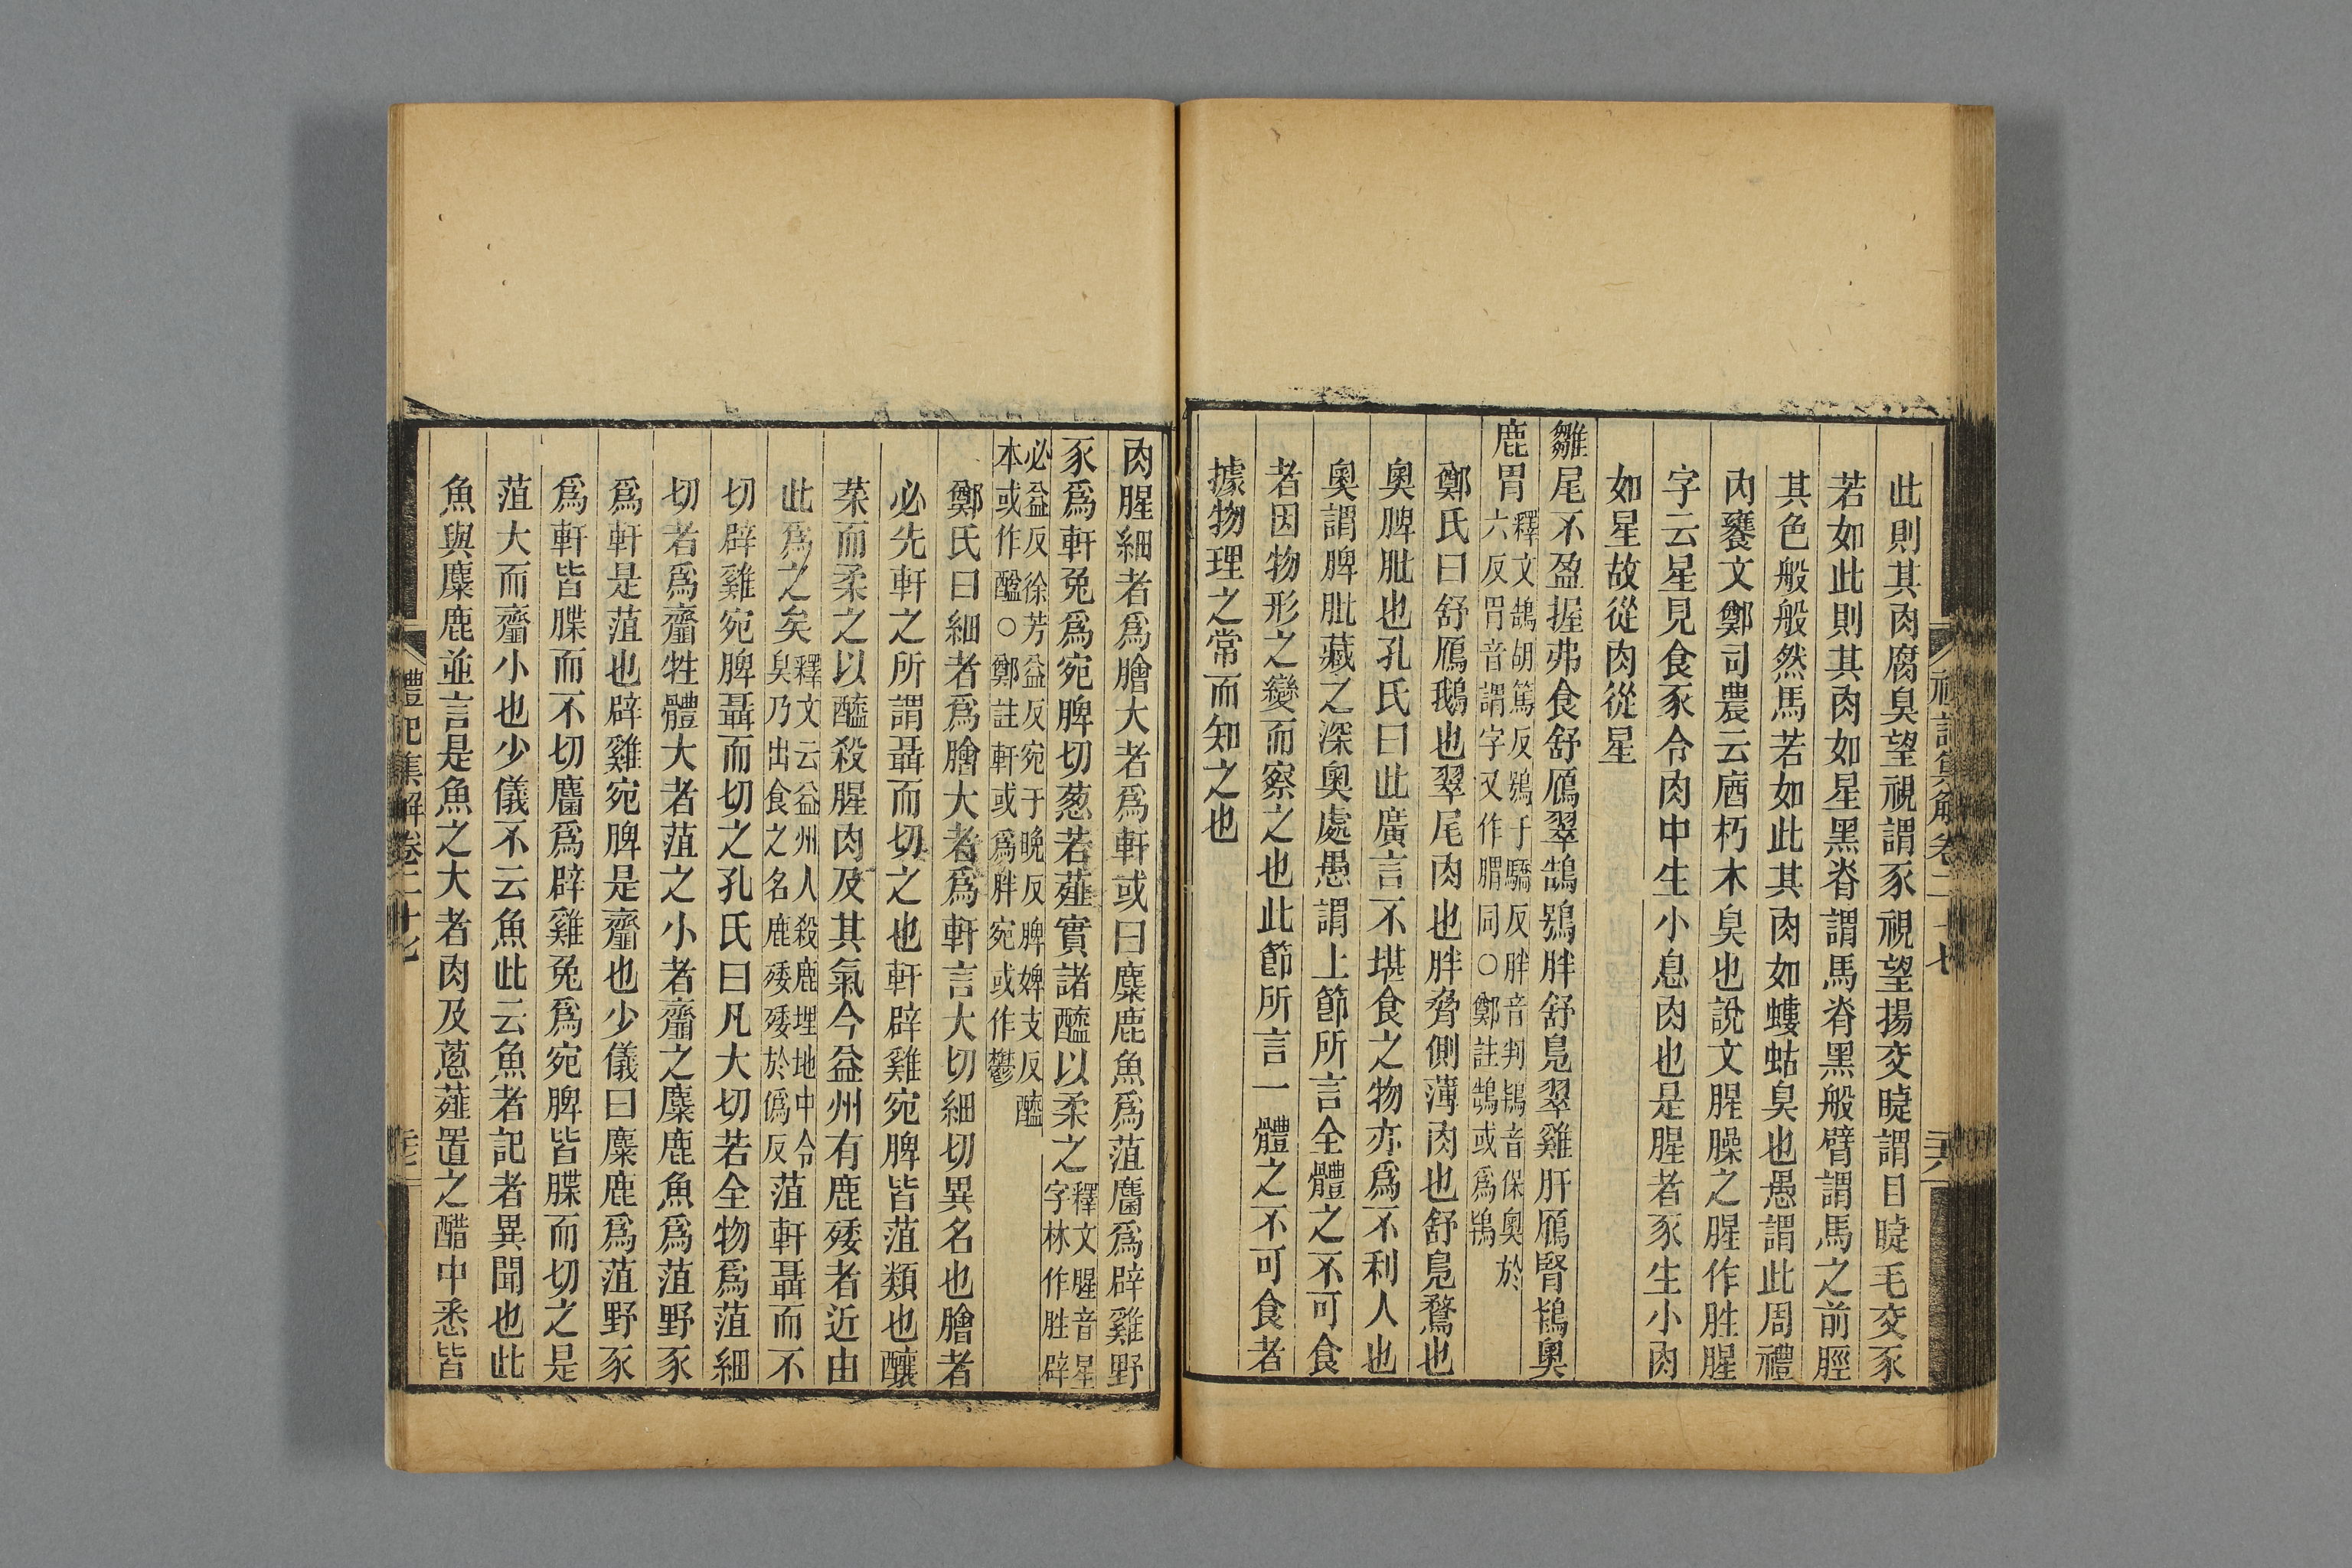 此則其肉腐臭望視謂豕視望揚交睫謂目睫毛交豕
若如此則其肉如星黑脊謂馬脊黑般臂謂馬之前脛
其色般般然馬若如此其肉如螻蛄臭也愚謂此周禮
內饔文鄭司農云庮朽木臭也說文腥臊之腥作胜腥
字云星見食豕令肉中生小息肉也是腥者豕生小肉
如星故從肉從星
雛尾不盈握弗食舒鴈翠鵠鴞胖舒鳧翠雞肝鴈腎鴇奧
鹿胃釋文鵠胡篤反鴞于驕反胖音判鴇音保奧於
六反胃音謂字又作䐿同○鄭註鵠或為鴇
鄭氏曰舒鴈鵝也翠尾肉也胖脅側薄肉也舒鳧鶩也
奧脾肶也孔氏曰此廣言不堪食之物亦爲不利人也
奧謂脾肶藏之深奧處愚謂上節所言全體之不可食
者因物形之變而察之也此節所言一體之不可食者
據物理之常而知之也
禮記集解卷二十七
肉腥細者爲膾大者爲軒或曰麋鹿魚爲菹麕爲辟雞野
豕爲軒兔爲宛脾切葱若薤實諸醯以柔之釋文腥音星
字林作胜辟
必益反徐芳益反宛于晚反脾婢支反醯
本或作醯○鄭註軒或爲胖宛或作鬱
鄭氏曰細者爲膾大者爲軒言大切細切異名也膾者
必先軒之所謂聶而切之也軒辟雞宛脾皆菹類也釀
菜而柔之以醯殺腥肉及其氣今益州有鹿㱮者近由
此爲之矣釋文云益州人殺鹿埋地中令
臭乃出食之名鹿㱮㱮於僞反菹軒聶而不
切辟雞宛脾聶而切之孔氏曰凡大切若全物爲菹細
切者爲齏牲體大者菹之小者齏之麋鹿魚爲菹野豕
爲軒是菹也辟雞宛脾是齏也少儀曰麋鹿爲菹野豕
爲軒皆䐑而不切麕爲辟雞兔爲宛脾皆䐑而切之是
菹大而齏小也少儀不云魚此云魚者記者異聞也此
魚與麋鹿並言是魚之大者肉及蔥薤置之醋中悉皆
禮記集解卷二十七